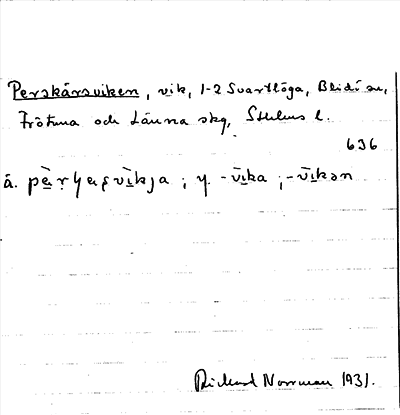 Perskärsviken, vik, 1-2 Svartlöga, Blidö sn,
Frötuna och Länna skg, Sthlms l.
636
ä. pæ̀ṛʂæʂvìkja ; y. -vīka ; -vīkən
Rickard Norrman 1931.